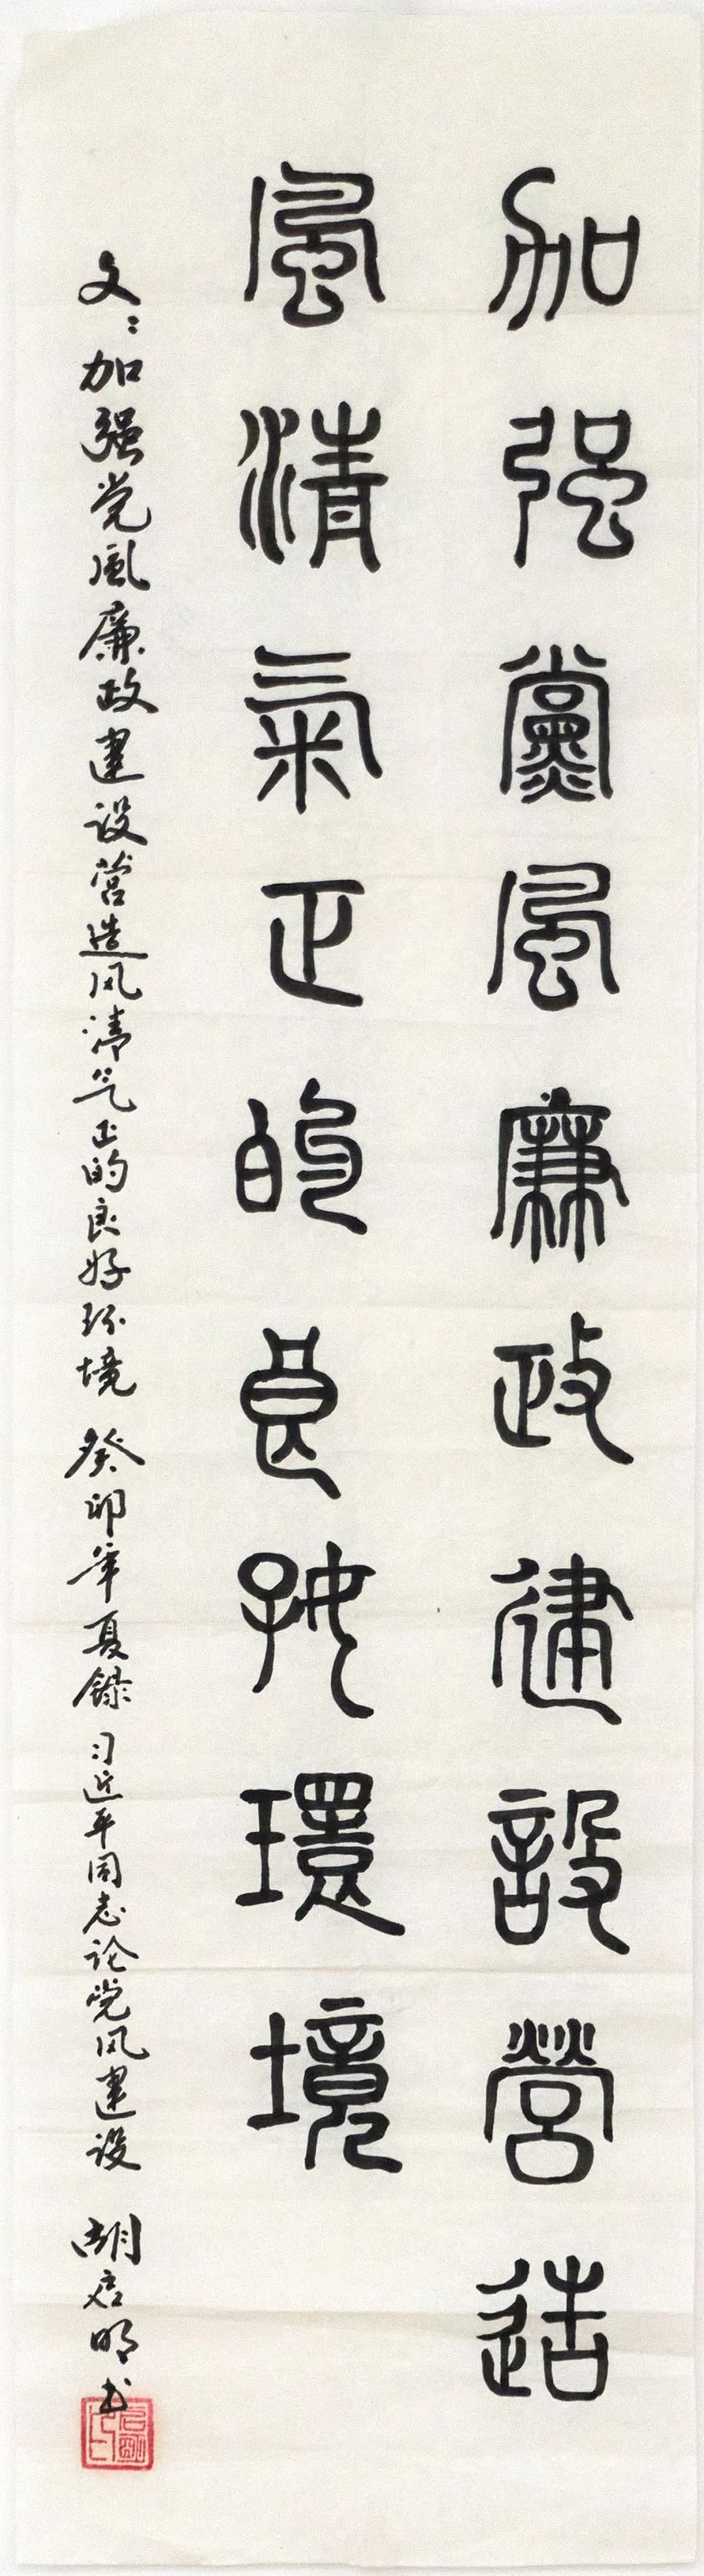 加强黨風廉政建設營造
風清氣正的良好環境
文:加强党風廉政建设营造风清气正的良好环境 癸卯年夏録 习近平同志论党风建设 胡启明书